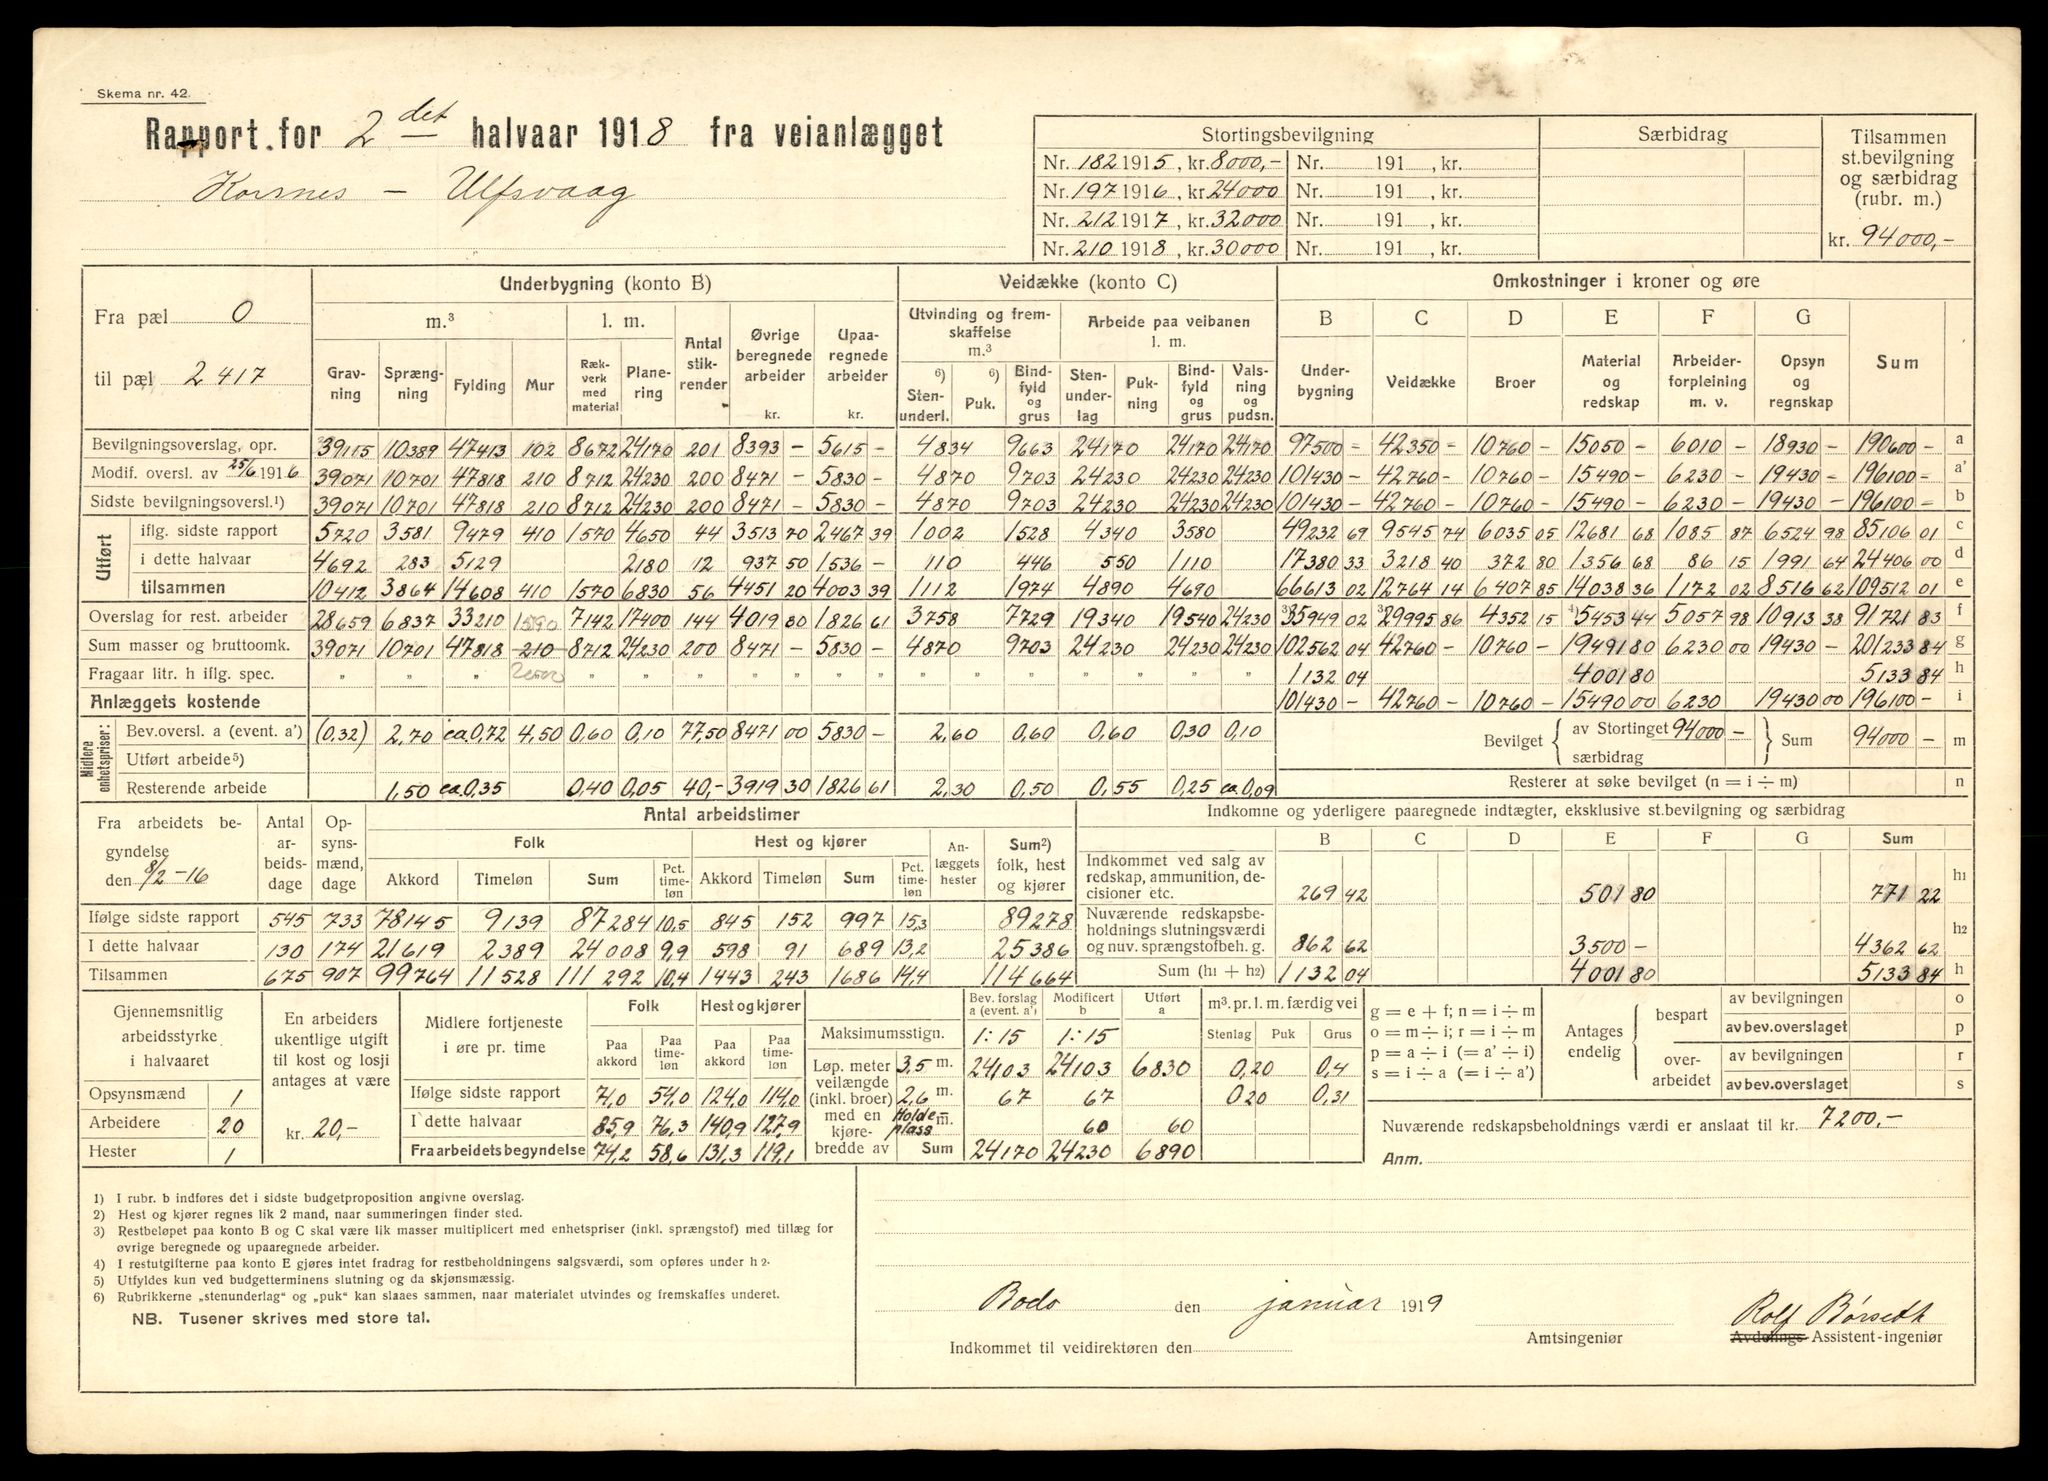 Skema nr. 42.
Rapport for 2det halvaar 1918 fra veianlægget
Korsnes – Ulfsvaag
Stortingsbevilgning Særbidrag Tilsammen st.bevilgning og særbidrag (rubr. m.)
Nr. 182 1915, kr. 8000,- Nr. 191 , kr.
Nr. 197 1916, kr. 24000 Nr. 191 , kr.
Nr. 212 1917, kr. 32000 Nr. 191 , kr.
Nr. 210 1918, kr. 30000 Nr. 191 , kr. kr. 94000,-
Fra pæl 0
til pæl 2417
Underbygning (konto B) Veidække (konto C) Omkostninger i kroner og øre
m.³ l. m. Antal stikrender Øvrige beregnede arbeider kr. Upaaregnede arbeider kr. Utvinding og fremskaffelse m.³ Arbeide paa veibanen l. m. B C D E F G
Gravning Sprængning Fylding Mur Rækverk med material Planering 6) Stenunderl. 6) Puk. Bindfyld og grus Stenunderlag Pukning Bindfyld og grus Valsning og pudsn. Underbygning Veidække Broer Material og redskap Arbeiderforpleining m. v. Opsyn og regnskap Sum
Bevilgningsoverslag, opr. 39115 10389 47413 102 8672 24170 201 8393 – 5615 – 4834 9663 24170 24170 24170 97500 – 42350 – 10760 – 15050 – 6010 – 18930 – 190600 – a
Modif. oversl. av 25/6 1916 39071 10701 47818 210 8712 24230 200 8471 – 5830 – 4870 9703 24230 24230 24230 101430 – 42760 – 10760 – 15490 – 6230 – 19430 – 196100 – a'
Sidste bevilgningsoversl.¹) 39071 10701 47818 210 8712 24230 200 8471 – 5830 – 4870 9703 24230 24230 24230 101430 – 42760 – 10760 – 15490 – 6230 – 19430 – 196100 – b
Utført
iflg. sidste rapport 5720 3581 9479 410 1570 4650 44 3513 70 2467 39 1002 1528 4340 3580 49232 69 9545 74 6035 05 12681 68 1085 87 6524 98 85106 01 c
i dette halvaar 4692 283 5129 2180 12 937 50 1536 – 110 446 550 1110 17380 33 3218 40 372 80 1356 68 86 15 1991 64 24406 00 d
tilsammen 10412 3864 14608 410 1570 6830 56 4451 20 4003 39 1112 1974 4890 4690 66613 02 12764 14 6407 85 14038 36 1172 02 8516 62 109512 01 e
Overslag for rest. arbeider 28659 6837 33210 7142 17400 144 4019 80 1826 61 3758 7729 19340 19540 24230 ³)35949 02 ³)29995 86 4352 15 ⁴)5453 44 5057 98 10913 38 91721 83 f
Sum masser og bruttoomk. 39071 10701 47818 210 8712 24230 200 8471 – 5830 – 4870 9703 24230 24230 24230 102562 04 42760 – 10760 – 19491 80 6230 00 19430 – 201233 84 g
Fragaar litr. h iflg. spec. " " " " " " " " " " " " " " 1132 04 4001 80 5133 84 h
Anlæggets kostende 101430 – 42760 – 10760 – 15490 00 6230 19430 00 196100 – i
Midlere enhetspriser:
Bev.oversl. a (event. a') (0.32) 2,70 ca.0,72 4,50 0,60 0,10 77,50 8471 00 5830 – 2,60 0,60 0,60 0,30 0,10 Bevilget { av Stortinget 94000 – særbidrag } Sum 94000 – m
Utført arbeide⁵)
Resterende arbeide 1,50 ca.0,35 0,40 0,05 40,- 3919 30 1826 61 2,30 0,50 0,55 0,25 ca.0,09 Resterer at søke bevilget (n = i ÷ m) n
Fra arbeidets begyndelse den 8/2 -16 Antal arbeidsdage Opsynsmænd, dage Antal arbeidstimer Indkomne og yderligere paaregnede indtægter, eksklusive st.bevilgning og særbidrag
Folk Hest og kjører Anlæggets hester Sum²) folk, hest og kjører B C D E F G Sum
Akkord Timeløn Sum Pct. timeløn Akkord Timeløn Sum Pct. timeløn
Indkommet ved salg av redskap, ammunition, decisioner etc. 269 42 501 80 771 22 h1
Ifølge sidste rapport 545 733 78145 9139 87284 10,5 845 152 997 15,3 89278
Nuværende redskapsbeholdnings slutningsværdi og nuv. sprængstofbeh. g. 862 62 3500 – 4362 62 h2
I dette halvaar 130 174 21619 2389 24008 9,9 598 91 689 13,2 25386
Tilsammen 675 907 99764 11528 111292 10,4 1443 243 1686 14,4 114664 Sum (h1 + h2) 1132 04 4001 80 5133 84 h
Gjennemsnitlig arbeidsstyrke i halvaaret
Opsynsmænd 1
Arbeidere 20
Hester 1
En arbeiders ukentlige utgift til kost og losji antages at være
kr. 20,-
Midlere fortjeneste i øre pr. time Folk Hest og kjører
Paa akkord Paa timeløn Paa akkord Paa timeløn
Ifølge sidste rapport 71,0 54,0 124,0 114,0
I dette halvaar 85,9 76,3 140,9 127,9
Fra arbeidets begyndelse 74,2 58,6 131,3 119,1
Bev. forslag a (event. a') Modificert b Utført a m³. pr. l. m. færdig vei
Maksimumsstign. 1:15 1:15 Stenlag Puk Grus
Løp. meter veilængde (inkl. broer) med en kjørebredde av
3,5 m. 24103 24103 6830 0,20 0,4
2,6 m. 67 67 0,20 0,31
Holdeplass m. 60 60
Sum 24170 24230 6890
g = e + f; n = i ÷ m
o = m ÷ i; r = i ÷ m
p = a ÷ i (= a' ÷ i)
s = i ÷ a (= i ÷ a')
Antages endelig bespart av bevilgningen o
av bev.overslaget p
overarbeidet av bevilgningen r
av bev.overslaget s
Nuværende redskapsbeholdnings værdi er anslaat til kr. 7200,-
Anm.
1) I rubr. b indføres det i sidste budgetproposition angivne overslag.
2) Hest og kjører regnes lik 2 mand, naar summeringen finder sted.
3) Restbeløpet paa konto B og C skal være lik masser multiplicert med enhetspriser (inkl. sprængstof) med tillæg for
øvrige beregnede og upaaregnede arbeider.
4) I restutgifterne paa konto E gjøres intet fradrag for restbeholdningens salgsværdi, som opføres under h 2.
5) Utfyldes kun ved budgetterminens slutning og da skjønsmæssig.
6) Rubrikkerne „stenunderlag“ og „puk“ kan slaaes sammen, naar materialet utvindes og fremskaffes underet.
NB. Tusener skrives med store tal.
Bodø den januar 1919
Rolf Børseth
Amtsingeniør Avdelings- Assistent-ingeniør
Indkommet til veidirektøren den